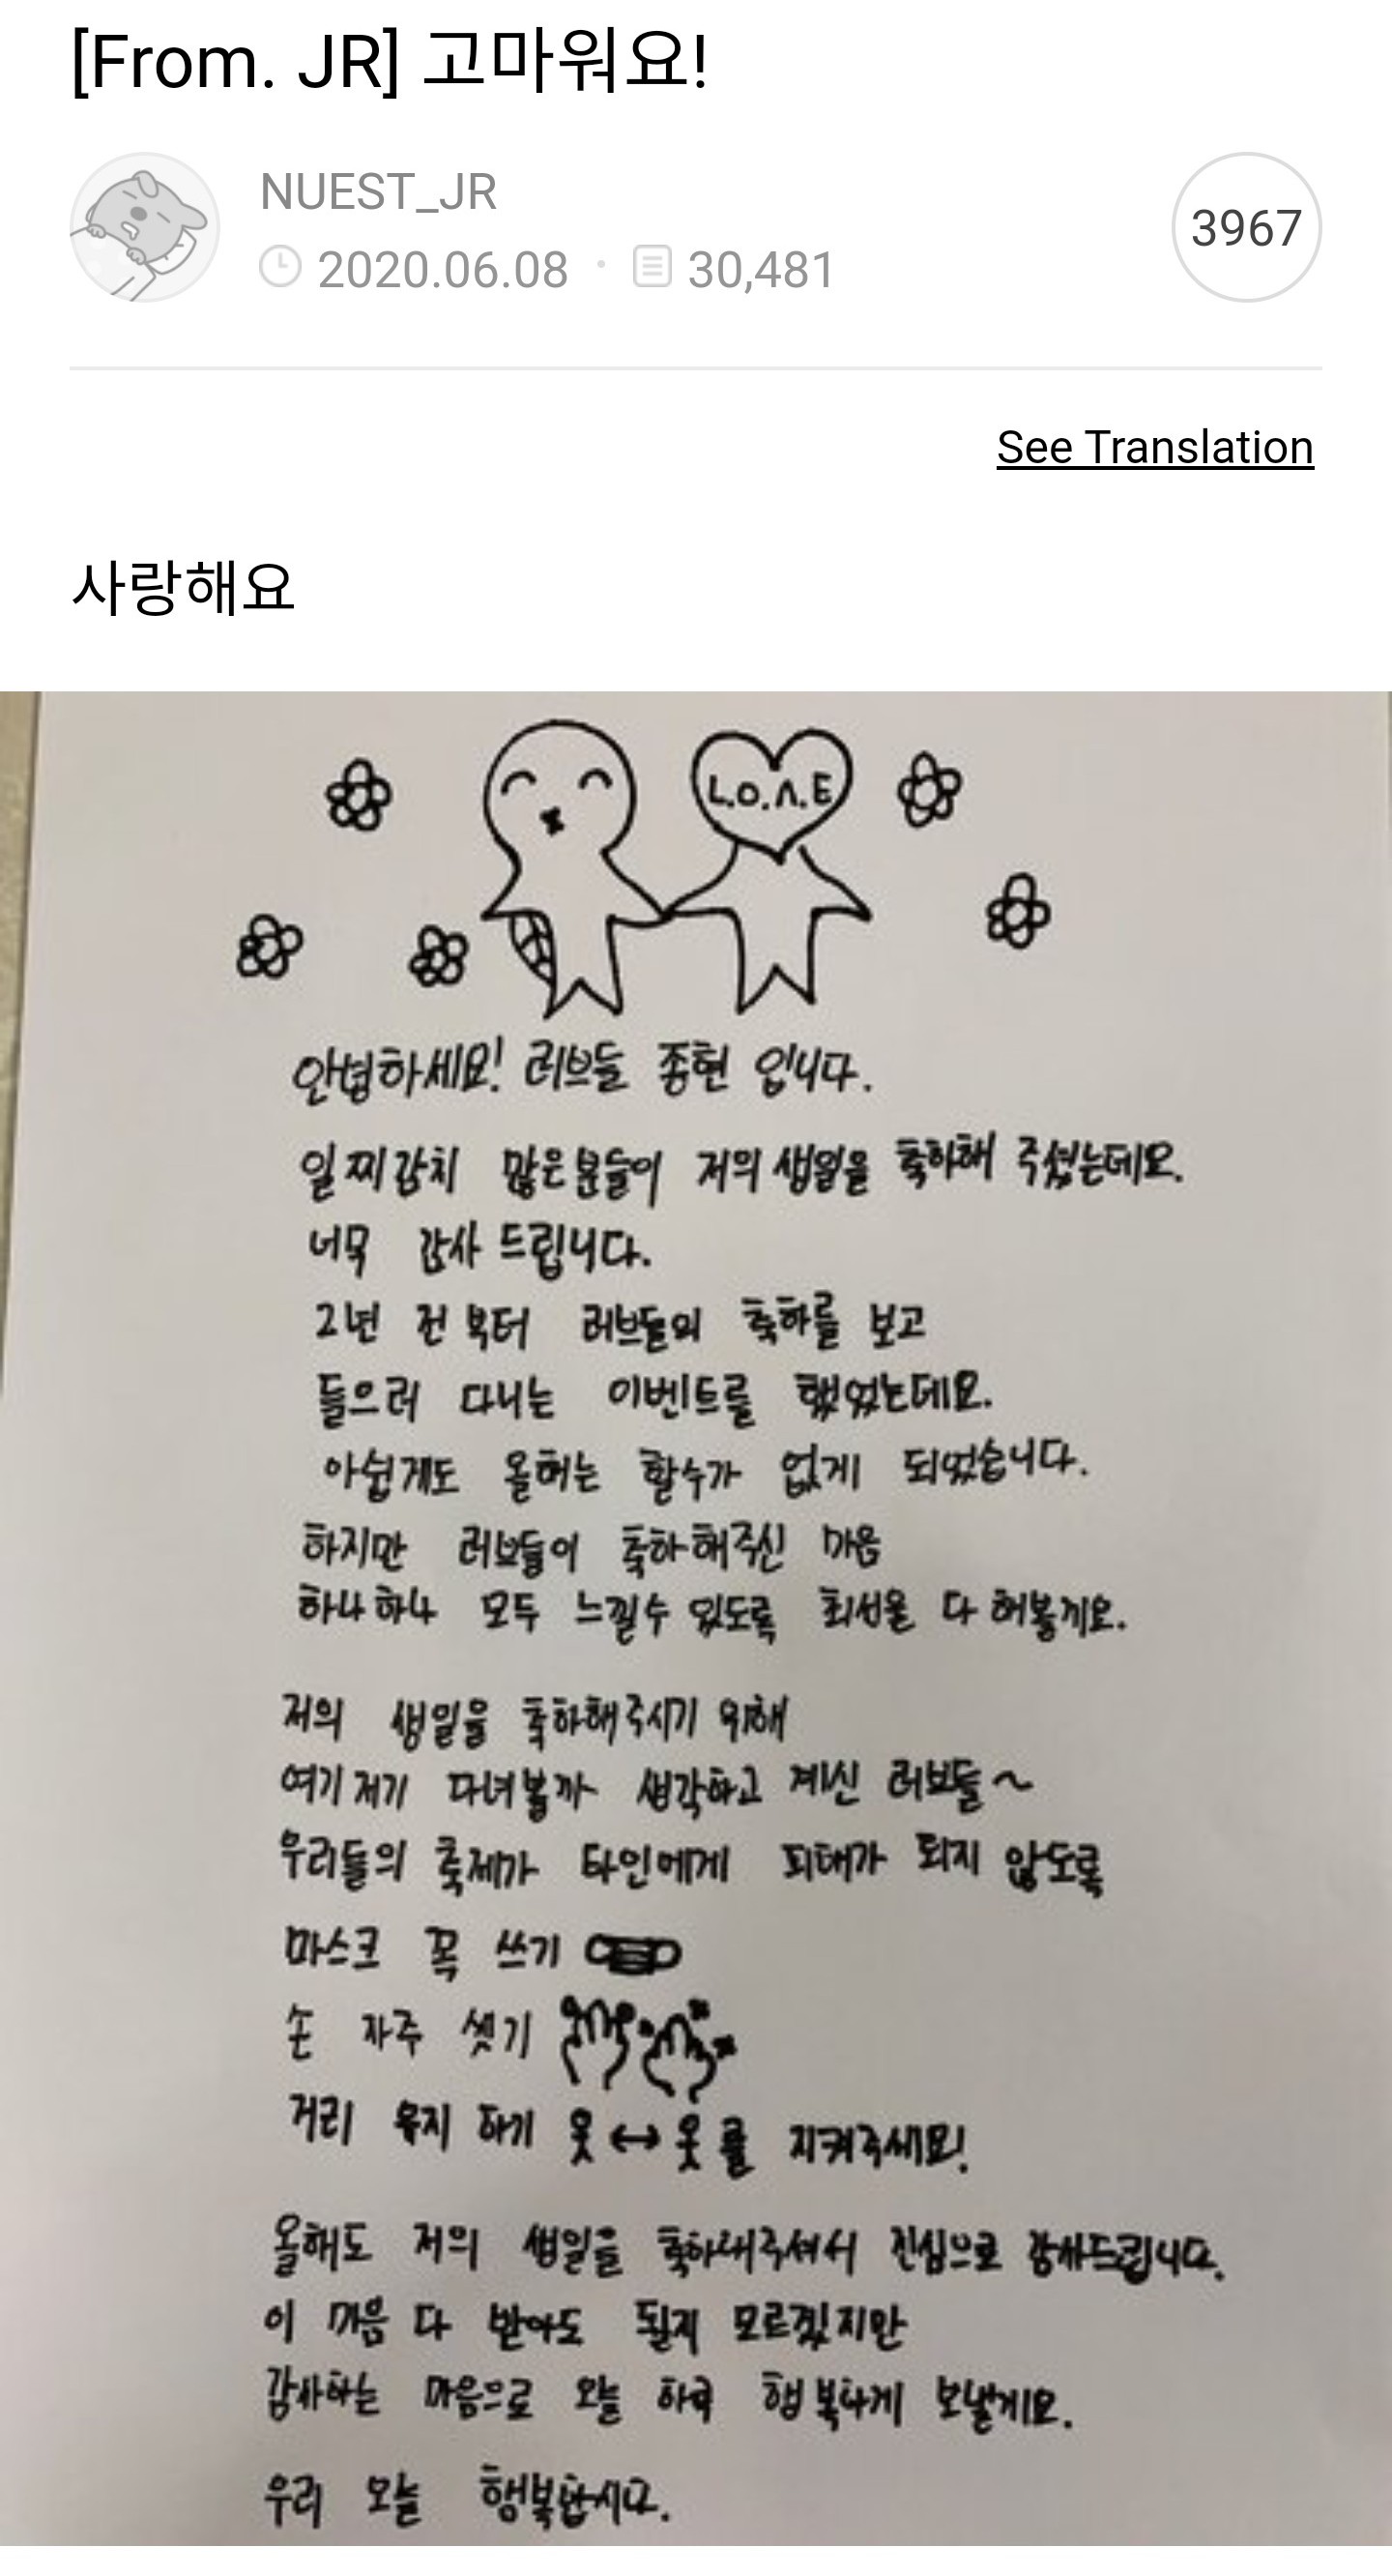 [From. JR] 고마워요!
NUEST_JR
3967
2020.06.08 · 30,481
See Translation
사랑해요
L.O.Λ.E
안녕하세요! 러브들 종현 입니다.
일찌감치 많은분들이 저의 생일을 축하해 주셨는데요.
너무 감사 드립니다.
2년 전부터 러브들의 축하를 보고
들으러 다니는 이벤트를 했었는데요.
아쉽게도 올해는 할수가 없게 되었습니다.
하지만 러브들이 축하해주신 마음
하나하나 모두 느낄수 있도록 최선을 다 해볼게요.
저의 생일을 축하해주시기 위해
여기저기 다녀볼까 생각하고 계신 러브들~
우리들의 축제가 타인에게 피해가 되지 않도록
마스크 꼭 쓰기
손 자주 씻기
거리 유지 하기 웃 ↔ 웃 를 지켜주세요!
올해도 저의 생일을 축하해주셔서 진심으로 감사드립니다.
이 마음 다 받아도 될지 모르겠지만
감사하는 마음으로 오늘 하루 행복하게 보낼게요.
우리 오늘 행복합시다.